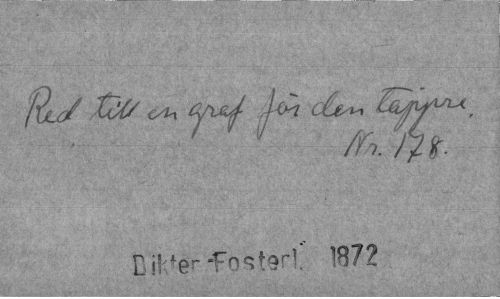 Red till en graf för den tappre.
Nr. 178.
Dikter-Fosterl. 1872